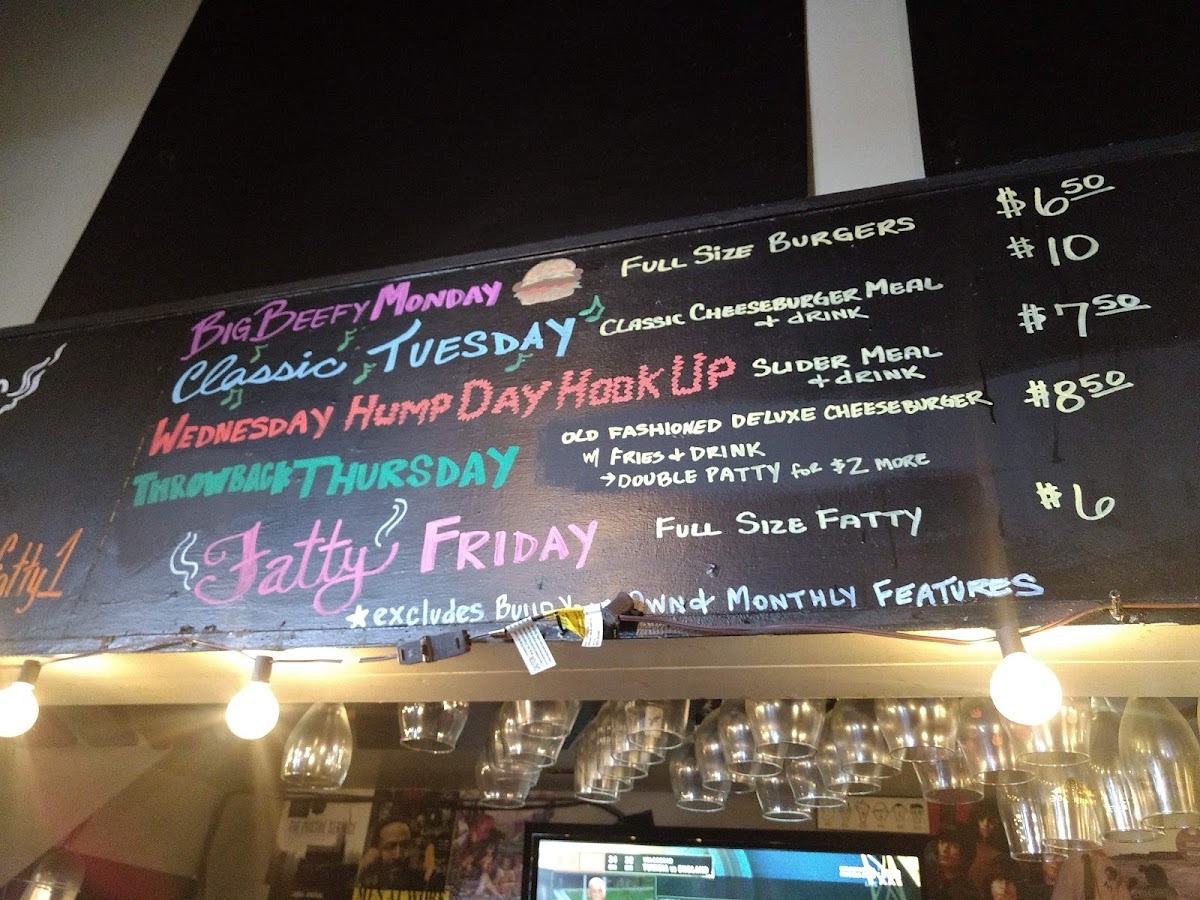 Big Beefy Monday Full Size Burgers $6.50
Classic Tuesday Classic Cheeseburger Meal $10
+ drink
Wednesday Hump Day Hook Up Slider Meal $7.50
+ drink
Throwback Thursday Old Fashioned Deluxe Cheeseburger $8.50
w/ Fries + Drink
→ Double Patty for $2 more
Fatty Friday Full Size Fatty $6
★excludes Build Your Own & Monthly Features
Fatty 1